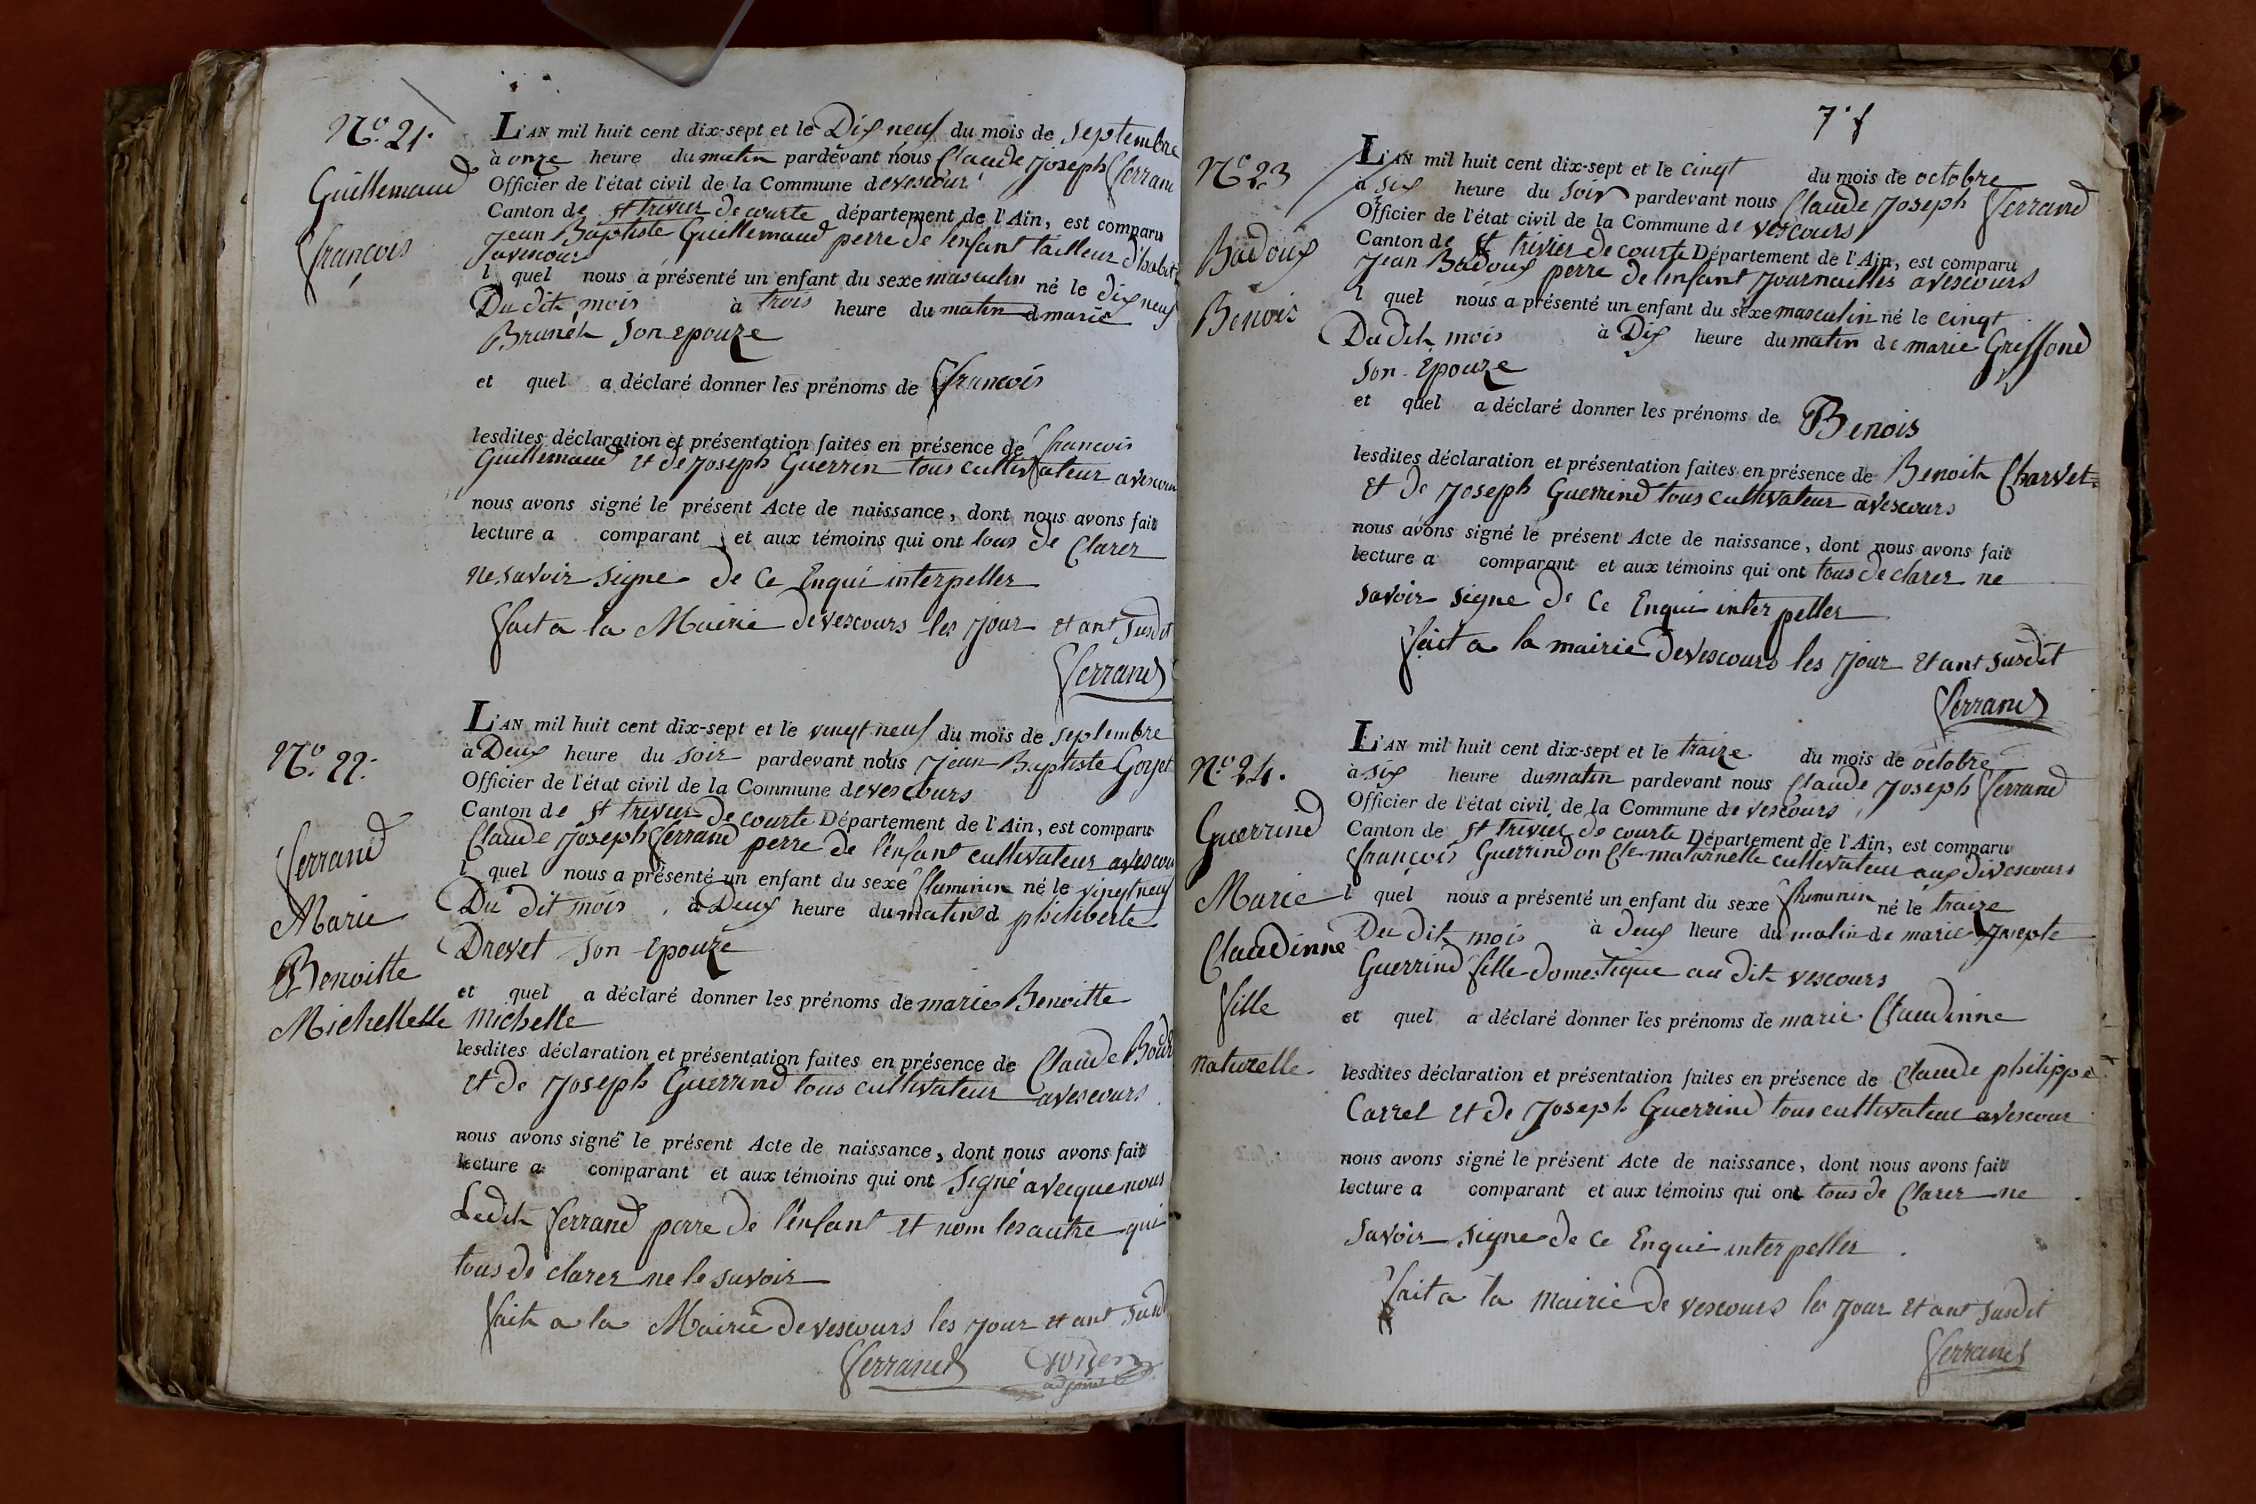 N.º 21.
Guillemaud
françois
L'AN mil huit cent dix-sept et le Dix neuf du mois de Septembre
à onze heure du matin pardevant nous Claude Joseph ferrand
Officier de l'état civil de la Commune de vescour
Canton de st trivier de courte département de l'Ain, est comparu
Jean Baptiste Guillemaud perre de l'enfant tailleur d'habit
a vescours
l quel nous a présenté un enfant du sexe masculin né le dix neuf
Du dit mois à trois heure du matin d marie
Brunet son epouze
et quel a déclaré donner les prénoms de françois
lesdites déclaration et présentation faites en présence de francois
Guillemaud et de Joseph Guerrin tous cultivateur a vescour
nous avons signé le présent Acte de naissance, dont nous avons fait
lecture a comparant et aux témoins qui ont tous de Clarer
ne savoir signe de Ce Enqui interpeller
fait a la Mairie de vescours les Jour et ant susdit
ferrand
N.º 22.
ferrand
Marie
Benoitte
Michellelle
L'AN mil huit cent dix-sept et le vingt neuf du mois de septembre
à Deux heure du soir pardevant nous Jean Baptiste Gorjet
Officier de l'état civil de la Commune de vescours
Canton de st trivier de courte Département de l'Ain, est comparu
Claude Joseph ferrand perre de l'enfant cultivateur a vescour
l quel nous a présenté un enfant du sexe flaminin né le vingt neuf
Du dit mois à Deux heure du matin d philiberte
Drevet son Epouze
et quel a déclaré donner les prénoms de marie Benoitte
Michelle
lesdites déclaration et présentation faites en présence de Claude
et de Joseph Guerrind tous cultivateur a vescours
nous avons signé le présent Acte de naissance, dont nous avons fait
lecture a comparant et aux témoins qui ont signé avecque nous
Ledit ferrand perre de l'enfant et nom les autre qui
tous de clarer ne le savoir
fait a la Mairie de vescours les jour et ant susd
ferrand
adjoint
7.f
N.º 23
Badoux
Benois
L'AN mil huit cent dix-sept et le cinqt du mois de octobre
à six heure du soir pardevant nous Claude Joseph ferrand
Officier de l'état civil de la Commune de vescours
Canton de st trivier de courte Département de l'Ain, est comparu
Jean Badoux perre de l'enfant Journaillier a vescours
l quel nous a présenté un enfant du sexe masculin né le cinqt
Du dit mois à Dix heure du matin de marie Griffond
son Epouze
et quel a déclaré donner les prénoms de Benois
lesdites déclaration et présentation faites en présence de Benoit Charvet
et de Joseph Guerrind tous cultivateur a vescours
nous avons signé le présent Acte de naissance, dont nous avons fait
lecture a comparant et aux témoins qui ont tous de clarer ne
savoir signe de Ce Enqui interpeller
fait a la mairie de vescours les Jour et ant susdit
ferrand
N.º 24.
Guerrind
Marie
Claudinne
fille
naturelle.
L'AN mil huit cent dix-sept et le traize du mois de octobre
à six heure du matin pardevant nous Claude Joseph ferrand
Officier de l'état civil de la Commune de vescours
Canton de st trivier de courte Département de l'Ain, est comparu
françois Guerrind oncle maternelle cultivateur aux di vescours
l quel nous a présenté un enfant du sexe fheminin né le traize
Du dit mois à deux heure du matin de marie Josepte
Guerrind fille domestique au dit vescours
et quel a déclaré donner les prénoms de marie Claudinne
lesdites déclaration et présentation faites en présence de Claude philippe
Carrel et de Joseph Guerrind tous cultivateur a vescour
nous avons signé le présent Acte de naissance, dont nous avons fait
lecture a comparant et aux témoins qui ont tous de Clarer ne
savoir signe de Ce Enqui interpeller
fait a la Mairie de vescours les Jour et ant susdit
ferrand